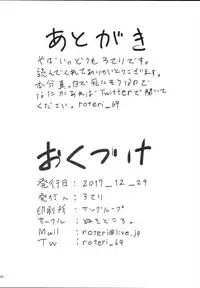 あとがき
やばいのどうも ろてりです。
読んでくれてありがとうございます。
なにかあれば Twitterで聞いて
ください。 roteri_69
おくづけ
発行日：2017_12_29
発行人：ろてり
印刷所：サングループ
サークル：ぬきどころ。
Mail：roteri@live.jp
TW：roteri_69